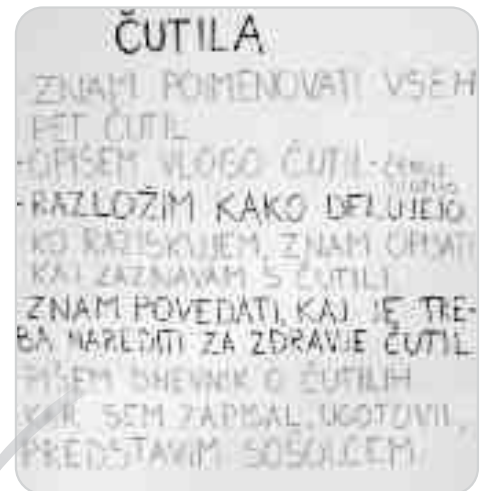 ČUTILA
ZNAM POIMENOVATI VSEH
PET ČUTIL
-OPIŠEM VLOGO ČUTIL-
-RAZLOŽIM KAKO DELUJEJO
KO RAZISKUJEM, ZNAM OPISATI
KAJ ZAZNAVAM S ČUTILI
ZNAM POVEDATI, KAJ JE TRE-
BA NAREDITI ZA ZDRAVJE ČUTIL
PIŠEM DNEVNIK O ČUTILIH
KAR SEM ZAPISAL, UGOTOVIL,
PREDSTAVIM SOŠOLCEM